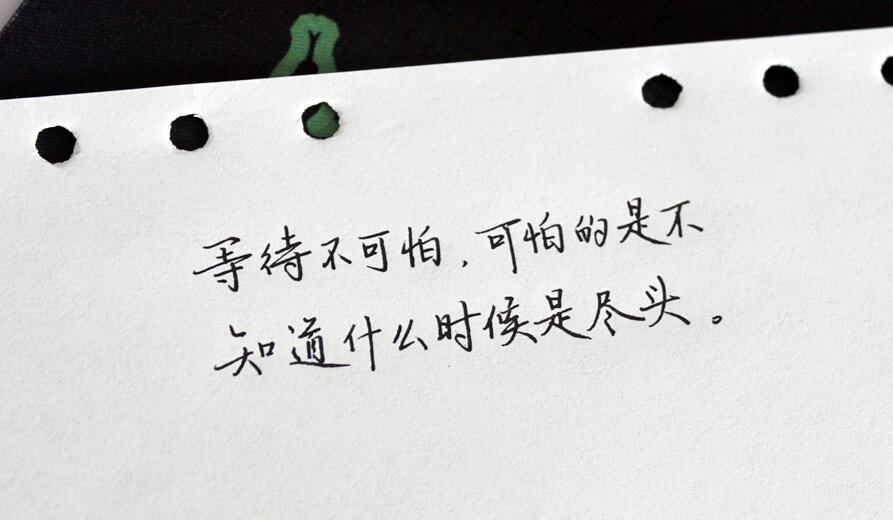 等待不可怕,可怕的是不
知道什么时候是尽头。